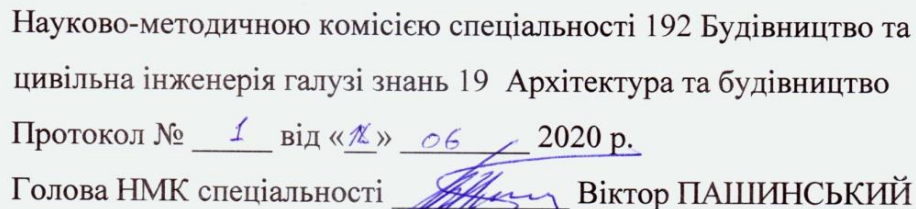 Науково-методичною комісією спеціальності 192 Будівництво та
цивільна інженерія галузі знань 19 Архітектура та будівництво
Протокол № 1 від «12» 06 2020 р.
Голова НМК спеціальності Віктор ПАШИНСЬКИЙ